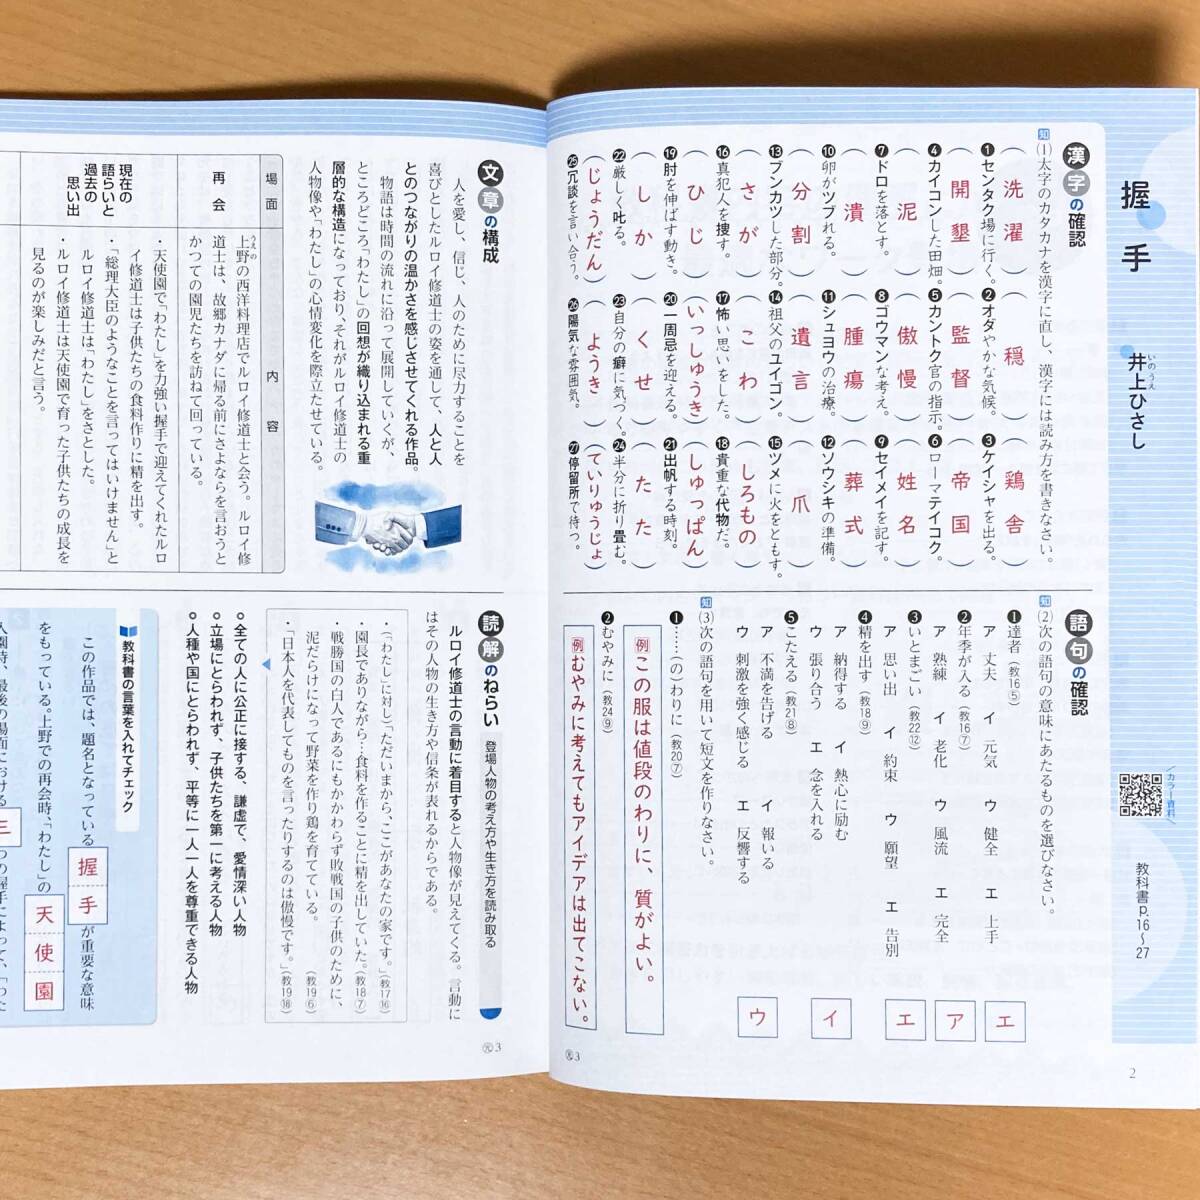 握手
井上ひさし
いのうえ
カラー資料
教科書p.16〜27
漢字の確認
知(1)太字のカタカナを漢字に直し、漢字には読み方を書きなさい。
❶センタク場に行く。(洗濯)
❷オダやかな気候。(穏)
❸ケイシャを出る。(鶏舎)
❹カイコンした田畑。(開墾)
❺カントク官の指示。(監督)
❻ローマテイコク。(帝国)
❼ドロを落とす。(泥)
❽ゴウマンな考え。(傲慢)
❾セイメイを記す。(姓名)
❿卵がツブれる。(潰)
⓫シュヨウの治療。(腫瘍)
⓬ソウシキの準備。(葬式)
⓭ブンカツした部分。(分割)
⓮祖父のユイゴン。(遺言)
⓯ツメに火をともす。(爪)
⓰真犯人を捜す。(さが)
⓱怖い思いをした。(こわ)
⓲貴重な代物だ。(しろもの)
⓳肘を伸ばす動き。(ひじ)
⓴一周忌を迎える。(いっしゅうき)
㉑出帆する時刻。(しゅっぱん)
㉒厳しく叱る。(しか)
㉓自分の癖に気づく。(くせ)
㉔半分に折り畳む。(たた)
㉕冗談を言い合う。(じょうだん)
㉖陽気な雰囲気。(ようき)
㉗停留所で待つ。(ていりゅうじょ)
語句の確認
知(2)次の語句の意味にあたるものを選びなさい。
❶達者(教16⑤)
ア 丈夫 イ 元気 ウ 健全 エ 上手
エ
❷年季が入る(教16⑦)
ア 熟練 イ 老化 ウ 風流 エ 完全
ア
❸いとまごい(教22⑫)
ア 思い出 イ 約束 ウ 願望 エ 告別
エ
❹精を出す(教18⑨)
ア 納得する イ 熱心に励む
ウ 張り合う エ 念を入れる
イ
❺こたえる(教21⑧)
ア 不満を告げる イ 報いる
ウ 刺激を強く感じる エ 反響する
ウ
知(3)次の語句を用いて短文を作りなさい。
❶……(の)わりに(教20⑦)
例 この服は値段のわりに、質がよい。
❷むやみに(教24⑨)
例 むやみに考えてもアイデアは出てこない。
2
㊋3
文章の構成
人を愛し、信じ、人のために尽力することを
喜びとしたルロイ修道士の姿を通して、人と人
とのつながりの温かさを感じさせてくれる作品。
物語は時間の流れに沿って展開していくが、
ところどころ「わたし」の回想が織り込まれる重
層的な構造になっており、それがルロイ修道士の
人物像や「わたし」の心情変化を際立たせている。
場面
内容
再会
上野の西洋料理店でルロイ修道士と会う。ルロイ修
うえの
道士は、故郷カナダに帰る前にさよならを言おうと
かつての園児たちを訪ねて回っている。
現在の
語らいと
過去の
思い出
・天使園で「わたし」を力強い握手で迎えてくれたルロ
イ修道士は子供たちの食料作りに精を出す。
・「総理大臣のようなことを言ってはいけません」と
ルロイ修道士は「わたし」をさとした。
・ルロイ修道士は天使園で育った子供たちの成長を
見るのが楽しみだと言う。
読解のねらい
登場人物の考え方や生き方を読み取る
ルロイ修道士の言動に着目すると人物像が見えてくる。言動に
はその人物の生き方や信条が表れるからである。
・(わたしに対し)「ただいまから、ここがあなたの家です。」(教17⑯)
・園長でありながら…食料を作ることに精を出していた。(教18⑦)
・戦勝国の白人であるにもかかわらず敗戦国の子供のために、
泥だらけになって野菜を作り鶏を育てている。(教19⑥)
・「日本人を代表してものを言ったりするのは傲慢です。」(教19⑱)
○全ての人に公正に接する、謙虚で、愛情深い人物
○立場にとらわれず、子供たちを第一に考える人物
○人種や国にとらわれず、平等に一人一人を尊重できる人物
教科書の言葉を入れてチェック
この作品では、題名となっている握手が重要な意味
をもっている。上野での再会時、「わたし」の天使園
入園時、最後の場面における三つの握手によって、「わた
㊋3